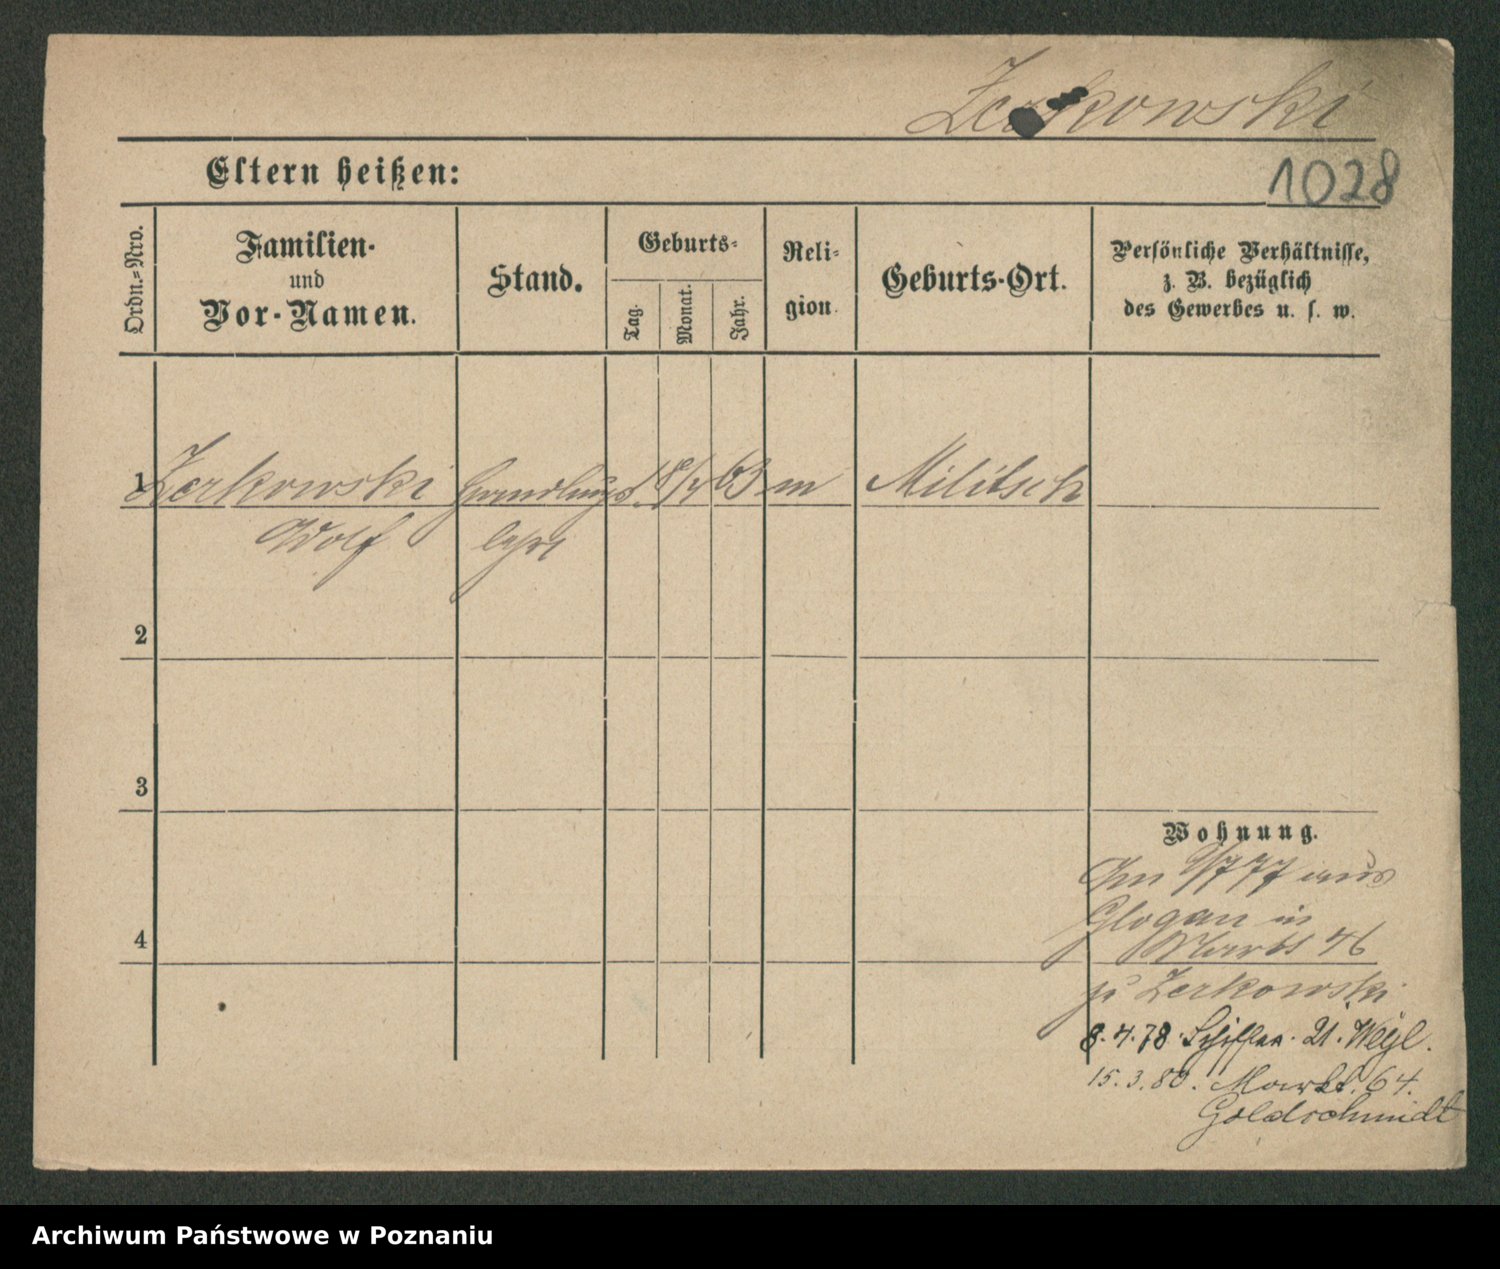 Zerkowski
Eltern heißen:
1028
Ordn.-Nro.
Familien-
und
Vor-Namen.
Stand.
Geburts-
Tag.
Monat.
Jahr.
Reli-
gion.
Geburts-Ort.
Persönliche Verhältnisse,
z. B. bezüglich
des Gewerbes u. s. w.
1 Zerkowski Handlungs 18/7 63 m Militsch
Adolf lehrl
2
3
Wohnung.
Im 9/7 77 aus
Glogau in
4 Markt 46
zu Zerkowski
8.4.78. Schifferstr. 21. Weyl.
15.3.80. Markt. 64.
Goldschmidt
Archiwum Państwowe w Poznaniu